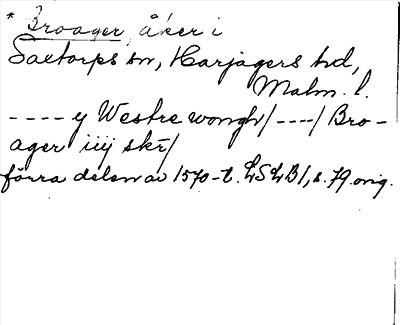 * Broager, åker i
Saxtorps sn, Harjagers hd,
Malm. l.
---- y Westre wongh/ ----/ Bro-
ager iiij skr/
förra delen av 1570-t. LSLB1, s. 79 orig.